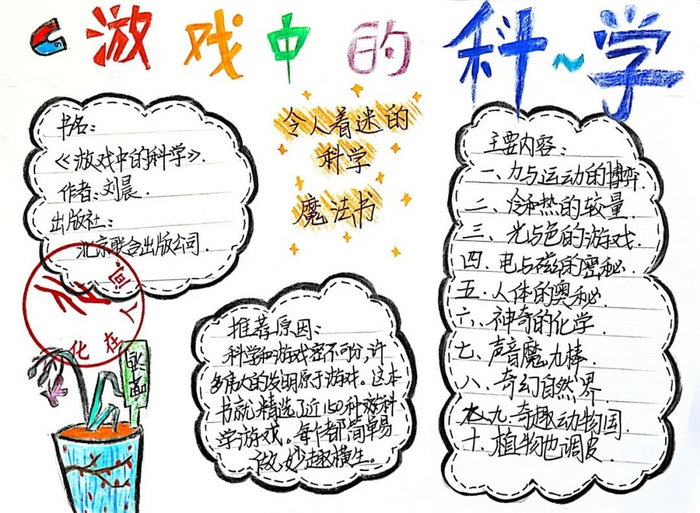 游戏中的科~学
令人着迷的
科学
魔法书
书名：
《游戏中的科学》.
作者：刘晨.
出版社：
北京联合出版公司.
推荐原因：
科学和游戏密不可分，许
多伟大的发明原于游戏。这本
书就精选了近150种科
学游戏。每个都简单易
做，妙趣横生。
主要内容：
一、力与运动的博弈
二、冷和热的较量.
三、光与色的游戏.
四、电与磁的奥秘.
五、人体的奥秘.
六、神奇的化学.
七、声音魔力棒.
八、奇幻自然界.
九、奇趣动物园.
十、植物也调皮.
化在人间